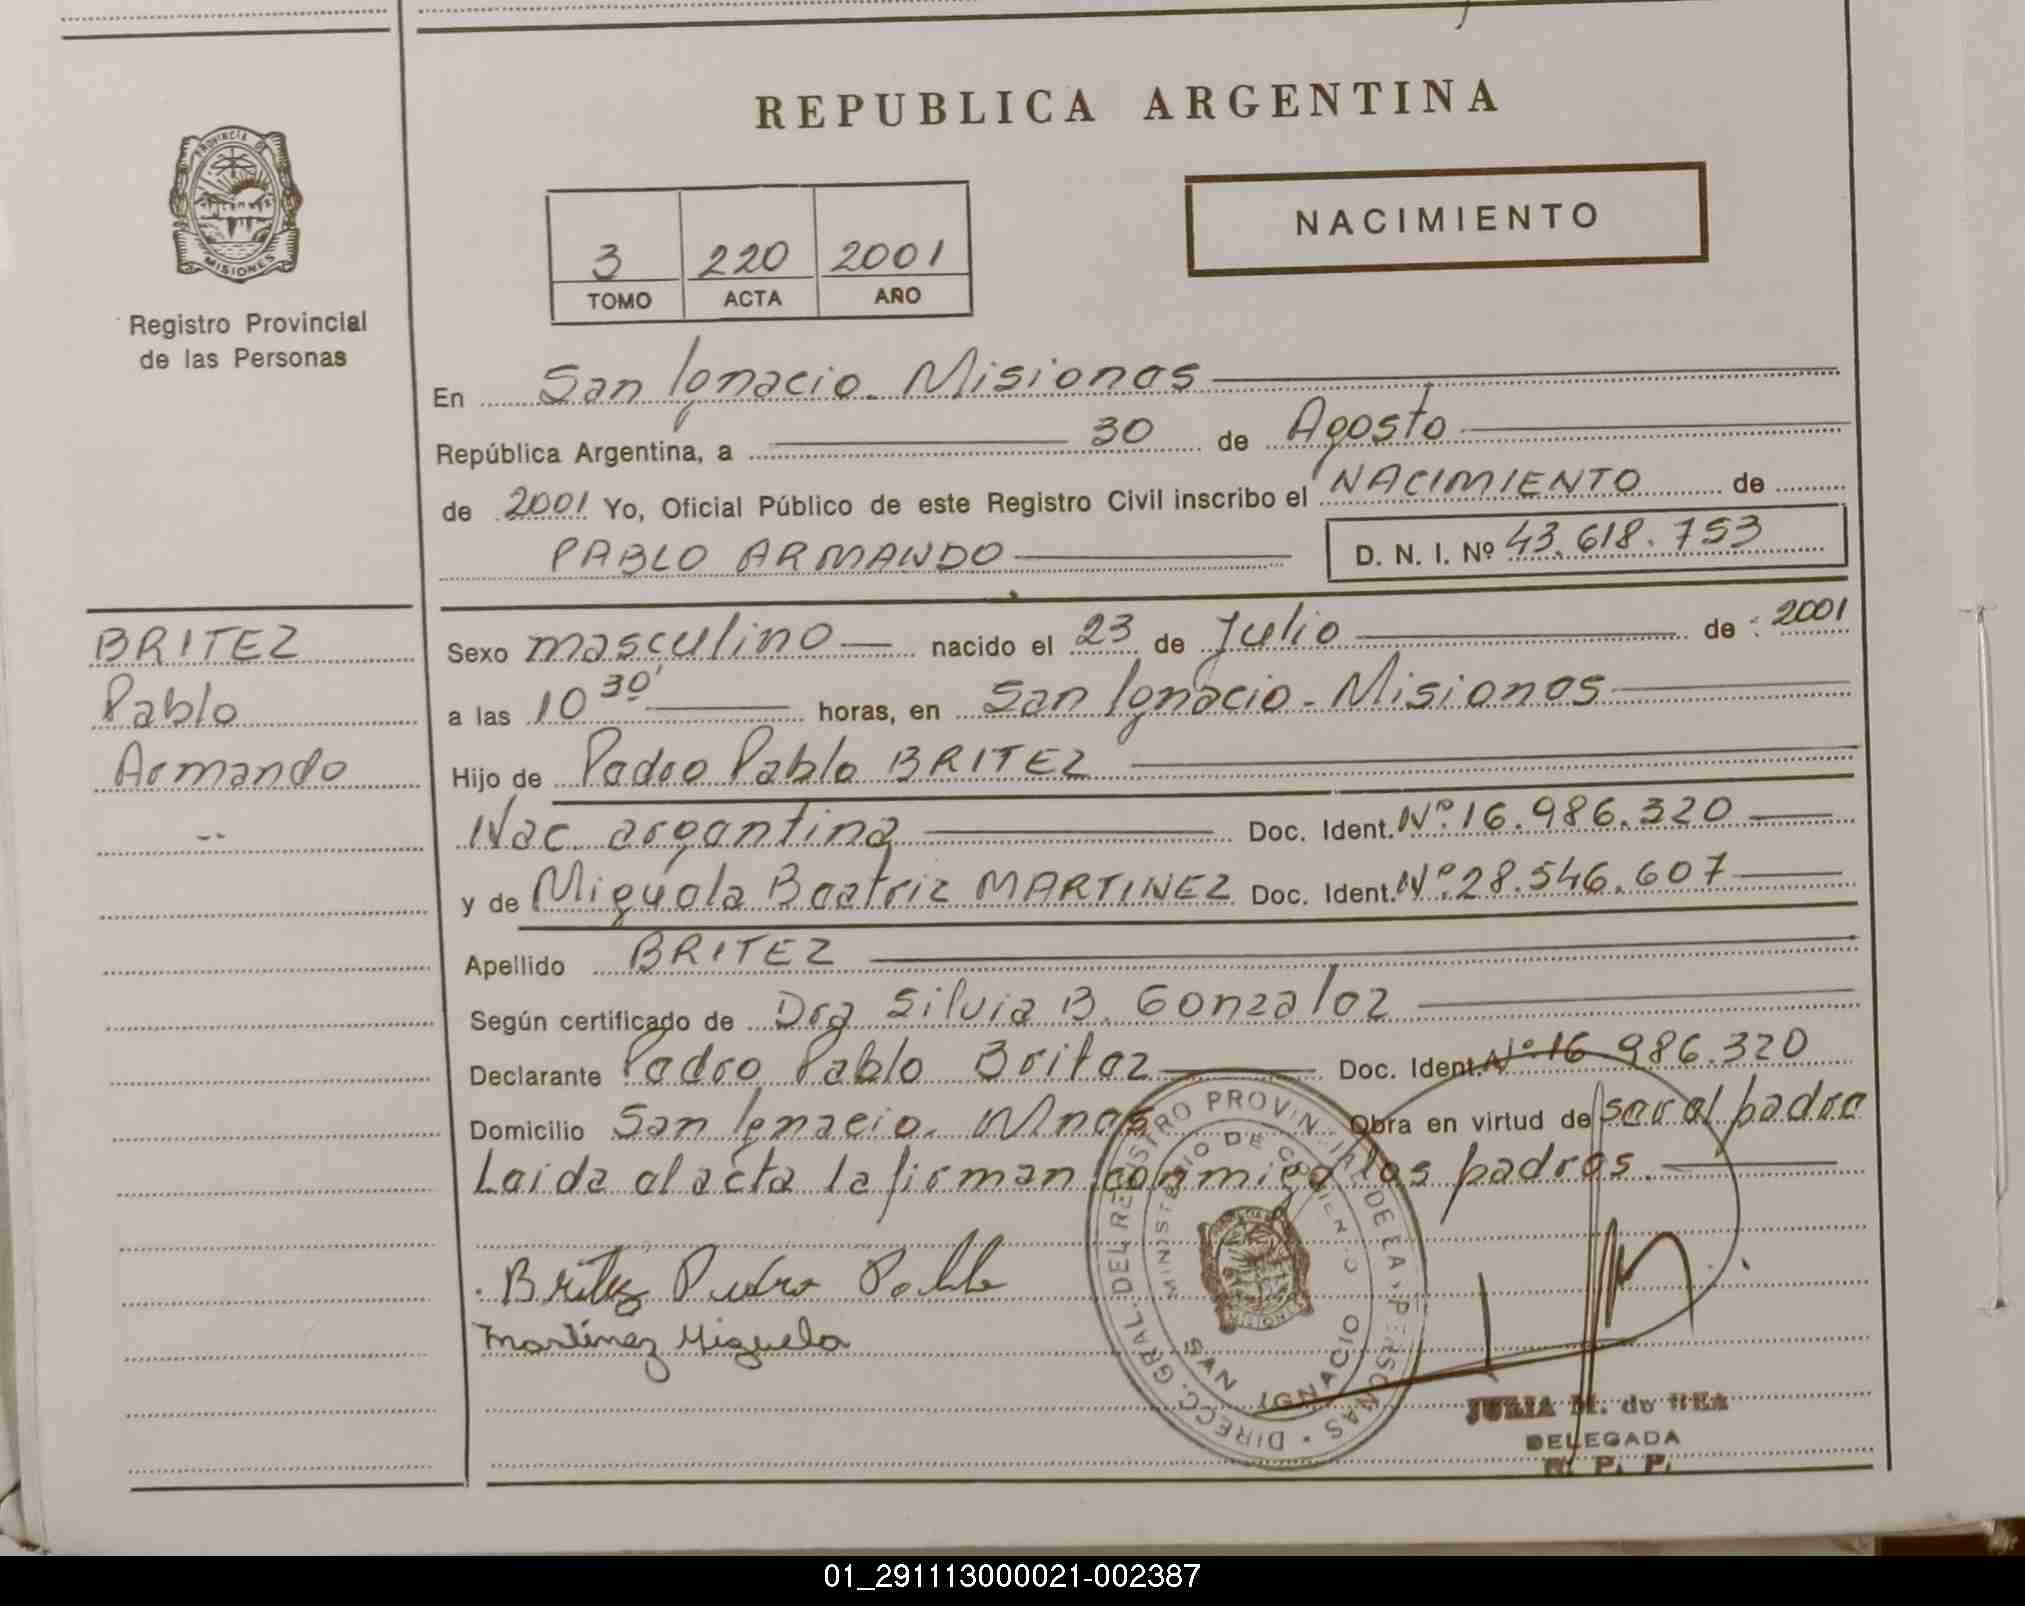 REPUBLICA ARGENTINA
PROVINCIA DE
MISIONES
Registro Provincial
de las Personas
NACIMIENTO
3 220 2001
TOMO ACTA AÑO
En San Ignacio - Misiones
República Argentina, a 30 de Agosto
de 2001 Yo, Oficial Público de este Registro Civil inscribo el NACIMIENTO de
PABLO ARMANDO D. N. I. Nº 43.618.753
BRITEZ
Pablo
Armando
Sexo masculino nacido el 23 de Julio de 2001
a las 10 30' horas, en San Ignacio - Misiones
Hijo de Pedro Pablo BRITEZ
Nac. argentina Doc. Ident. Nº 16.986.320
y de Miguela Beatriz MARTINEZ Doc. Ident. Nº 28.546.607
Apellido BRITEZ
Según certificado de Dra Silvia B. Gonzalez
Declarante Pedro Pablo Britez Doc. Ident. Nº 16.986.320
Domicilio San Ignacio - Mnes Obra en virtud de ser el padre
Leida el acta la firman conmigo los padres.
Britez Pedro Pablo
Martinez Miguela
DIRECC. GRAL. DEL REGISTRO PROVINCIAL DE LAS PERSONAS
MINISTERIO DE GOBIERNO
SAN IGNACIO
JULIA M. de REA
DELEGADA
R. P. P.
01_291113000021-002387